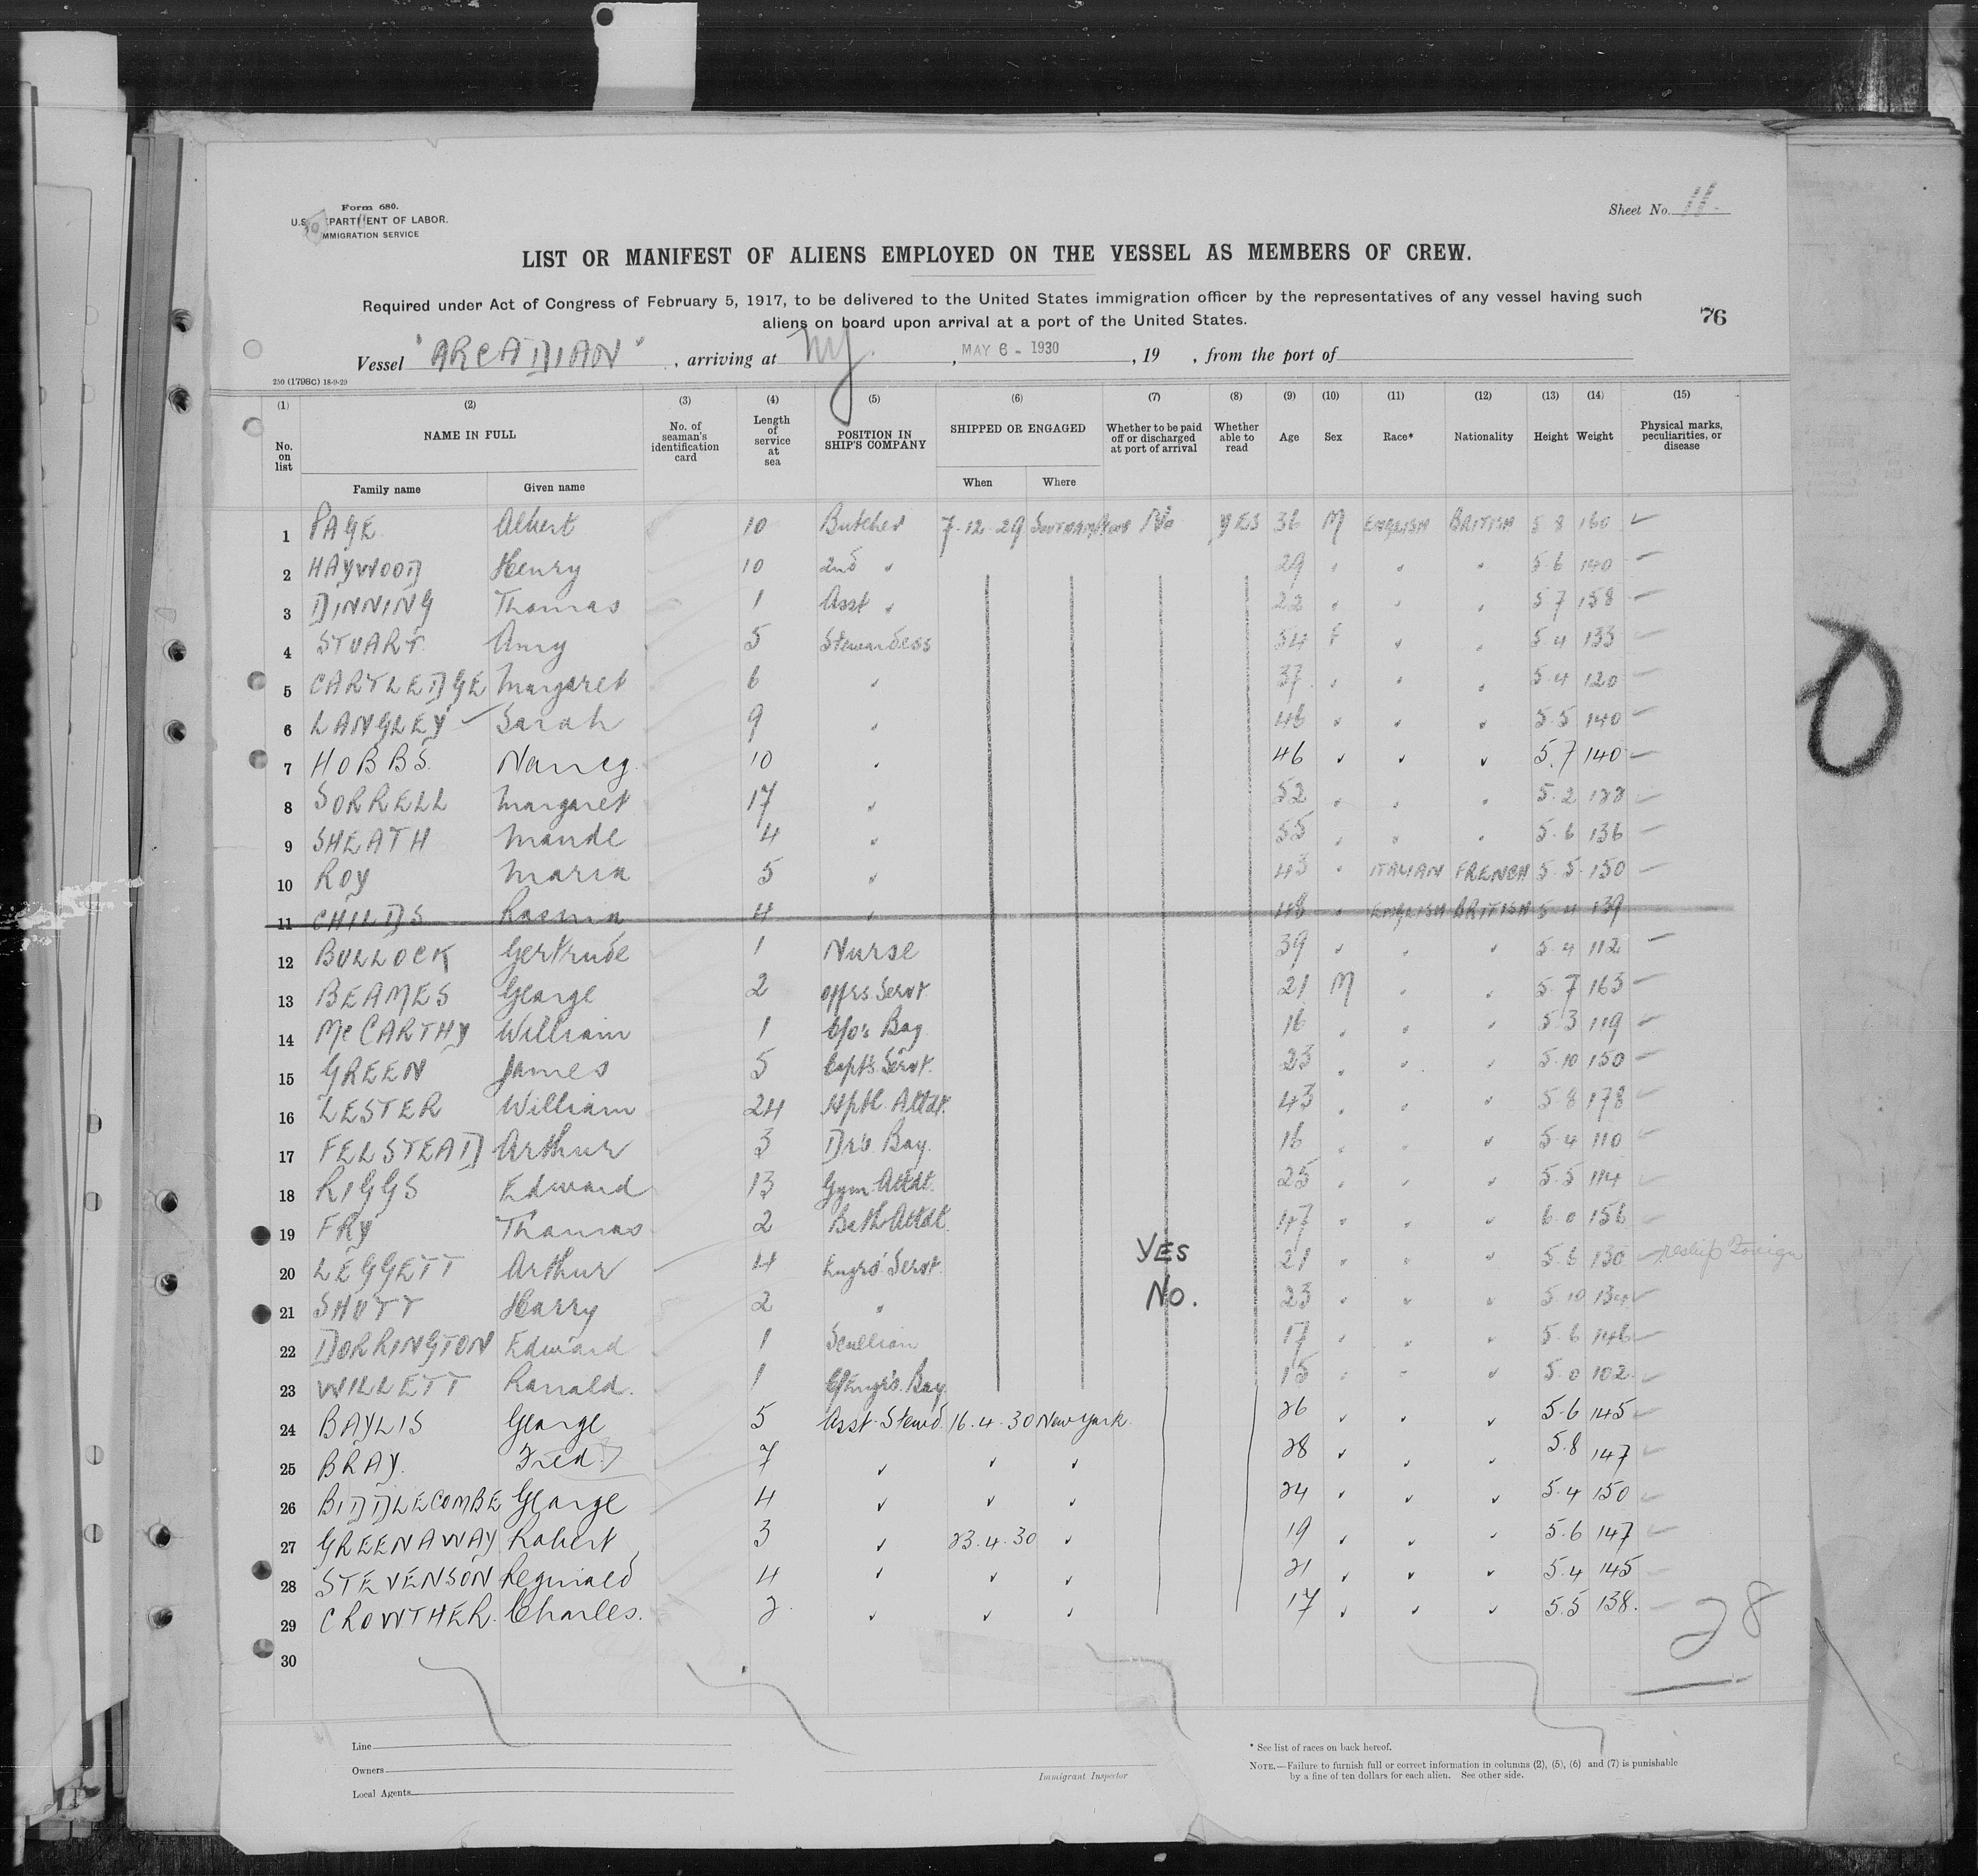 Form 680.
U.S. DEPARTMENT OF LABOR.
IMMIGRATION SERVICE
Sheet No. 11.
LIST OR MANIFEST OF ALIENS EMPLOYED ON THE VESSEL AS MEMBERS OF CREW.
Required under Act of Congress of February 5, 1917, to be delivered to the United States immigration officer by the representatives of any vessel having such
aliens on board upon arrival at a port of the United States.
76
Vessel "ARCADIAN", arriving at NY, MAY 6 - 1930, 19 , from the port of
250 (1798C) 18-9-29
(1) (2) (3) (4) (5) (6) (7) (8) (9) (10) (11) (12) (13) (14) (15)
No. on list NAME IN FULL No. of seaman's identification card Length of service at sea POSITION IN SHIP'S COMPANY SHIPPED OR ENGAGED Whether to be paid off or discharged at port of arrival Whether able to read Age Sex Race* Nationality Height Weight Physical marks, peculiarities, or disease
Family name Given name When Where
1 PAGE Albert 10 Butcher 7.12.29 Southampton No YES 36 M ENGLISH BRITISH 5 8 160
2 HAYWOOD Henry 10 2nd " 29 " " " 5 6 140
3 DINNING Thomas 1 Asst " 22 " " " 5 7 158
4 STUART Amy 5 Stewardess 54 F " " 5 4 133
5 CARTLEDGE Margaret 6 " 37 " " " 5 4 120
6 LANGLEY Sarah 9 " 46 " " " 5 5 140
7 HOBBS. Nancy. 10 " 46 " " " 5.7 140
8 SORRELL Margaret 17 " 52 " " " 5.2 188
9 SHEATH Maude 4 " 55 " " " 5.6 136
10 ROY Maria 5 " 43 " ITALIAN FRENCH 5.5 150
11 CHILDS 4 " 48 " ENGLISH BRITISH 5 4 139
12 BULLOCK Gertrude 1 Nurse 39 " " " 5 4 112
13 BEAMES George 2 Offrs. Servt. 21 M " " 5.7 163
14 McCARTHY William 1 Boy 16 " " " 5.3 119
15 GREEN James 5 Capt's Servt. 23 " " " 5.10 150
16 LESTER William 24 Hptl. Attdt. 43 " " " 5 8 178
17 FELSTEAD Arthur 3 Dr's Boy. 16 " " " 5 4 110
18 RIGGS Edward 13 Gym. Attdt. 25 " " " 5.5 114
19 FRY Thomas 2 Bath Attdt. 47 " " " 6.0 156
20 LEGGETT Arthur 4 Engrs' Servt. YES 21 " " " 5.6 130 reship foreign
21 SHUTT Harry 2 " No. 23 " " " 5 10 134
22 DORRINGTON Edward 1 Scullion 17 " " " 5.6 146
23 WILLETT Ronald. 1 Boy 15 " " " 5.0 102
24 BAYLIS George 5 Asst. Stewd. 16.4.30 New York. 26 " " " 5.6 145
25 BRAY. Fred. 7 " " " 28 " " " 5.8 147
26 BIDDLECOMBE George 4 " " " 24 " " " 5.4 150
27 GREENAWAY Robert 3 " 23.4.30 " 19 " " " 5.6 147
28 STEVENSON Reginald 4 " " " 21 " " " 5.4 145
29 CROWTHER. Charles. 2 " " " 17 " " " 5.5 138.
30
28
Line
Owners
Local Agents
Immigrant Inspector
* See list of races on back hereof.
NOTE.—Failure to furnish full or correct information in columns (2), (5), (6) and (7) is punishable
by a fine of ten dollars for each alien. See other side.